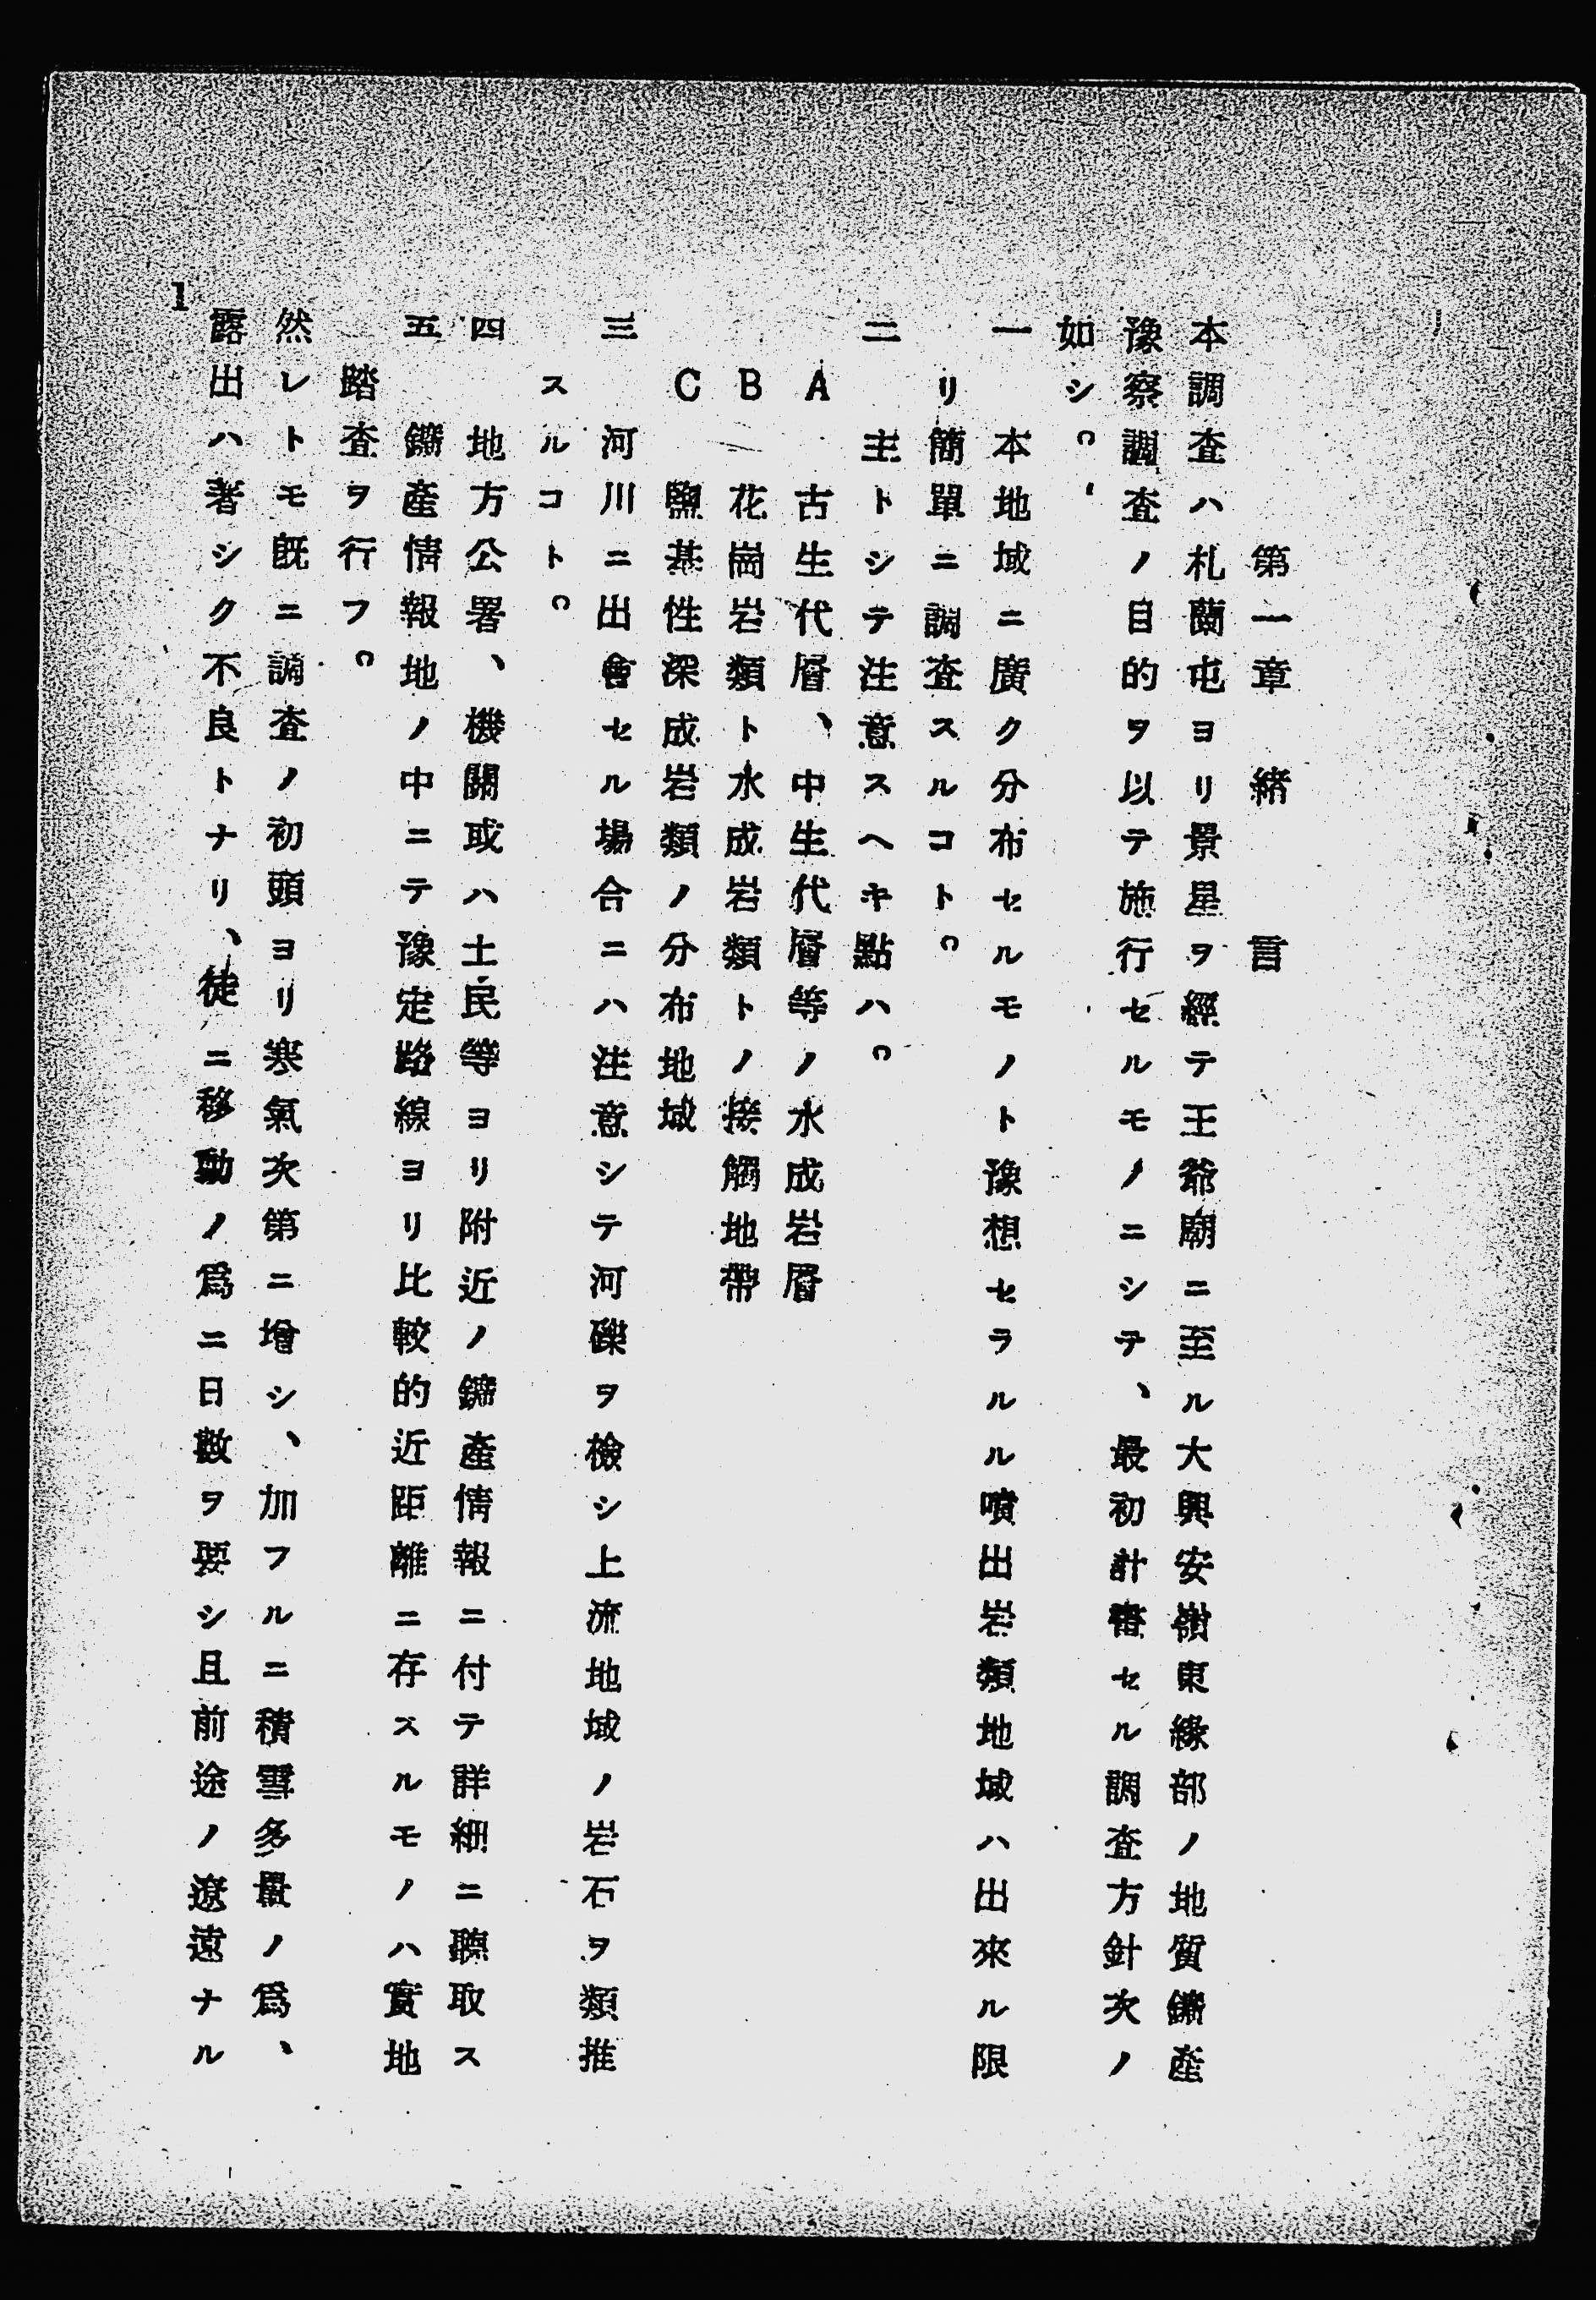 第一章　緒　言
本調査ハ札蘭屯ヨリ景星ヲ經テ王爺廟ニ至ル大興安嶺東緣部ノ地質鑛產
豫察調査ノ目的ヲ以テ施行セルモノニシテ、最初計畫セル調査方針次ノ
如シ。
一　本地域ニ廣ク分布セルモノト豫想セラルル噴出岩類地域ハ出來ル限
リ簡單ニ調査スルコト。
二　主トシテ注意スヘキ點ハ。
A　古生代層、中生代層等ノ水成岩層
B　花崗岩類ト水成岩類トノ接觸地帶
C　鹽基性深成岩類ノ分布地域
三　河川ニ出會セル場合ニハ注意シテ河礫ヲ檢シ上流地域ノ岩石ヲ類推
スルコト。
四　地方公署、機關或ハ土民等ヨリ附近ノ鑛產情報ニ付テ詳細ニ聽取ス
五　鑛產情報地ノ中ニテ豫定路線ヨリ比較的近距離ニ存スルモノハ實地
踏査ヲ行フ。
然レトモ既ニ調査ノ初頭ヨリ寒氣次第ニ增シ、加フルニ積雪多量ノ爲、
露出ハ著シク不良トナリ、徒ニ移動ノ爲ニ日數ヲ要シ且前途ノ遼遠ナル
1